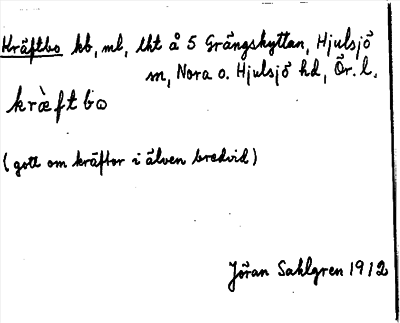 Kräftbo kb, ml, tht å 5 Grängshyttan, Hjulsjö
sn, Nora o. Hjulsjö hd, Ör. l.
kræ̀ftbo
(gott om kräftor i älven bredvid)
Jöran Sahlgren 1912